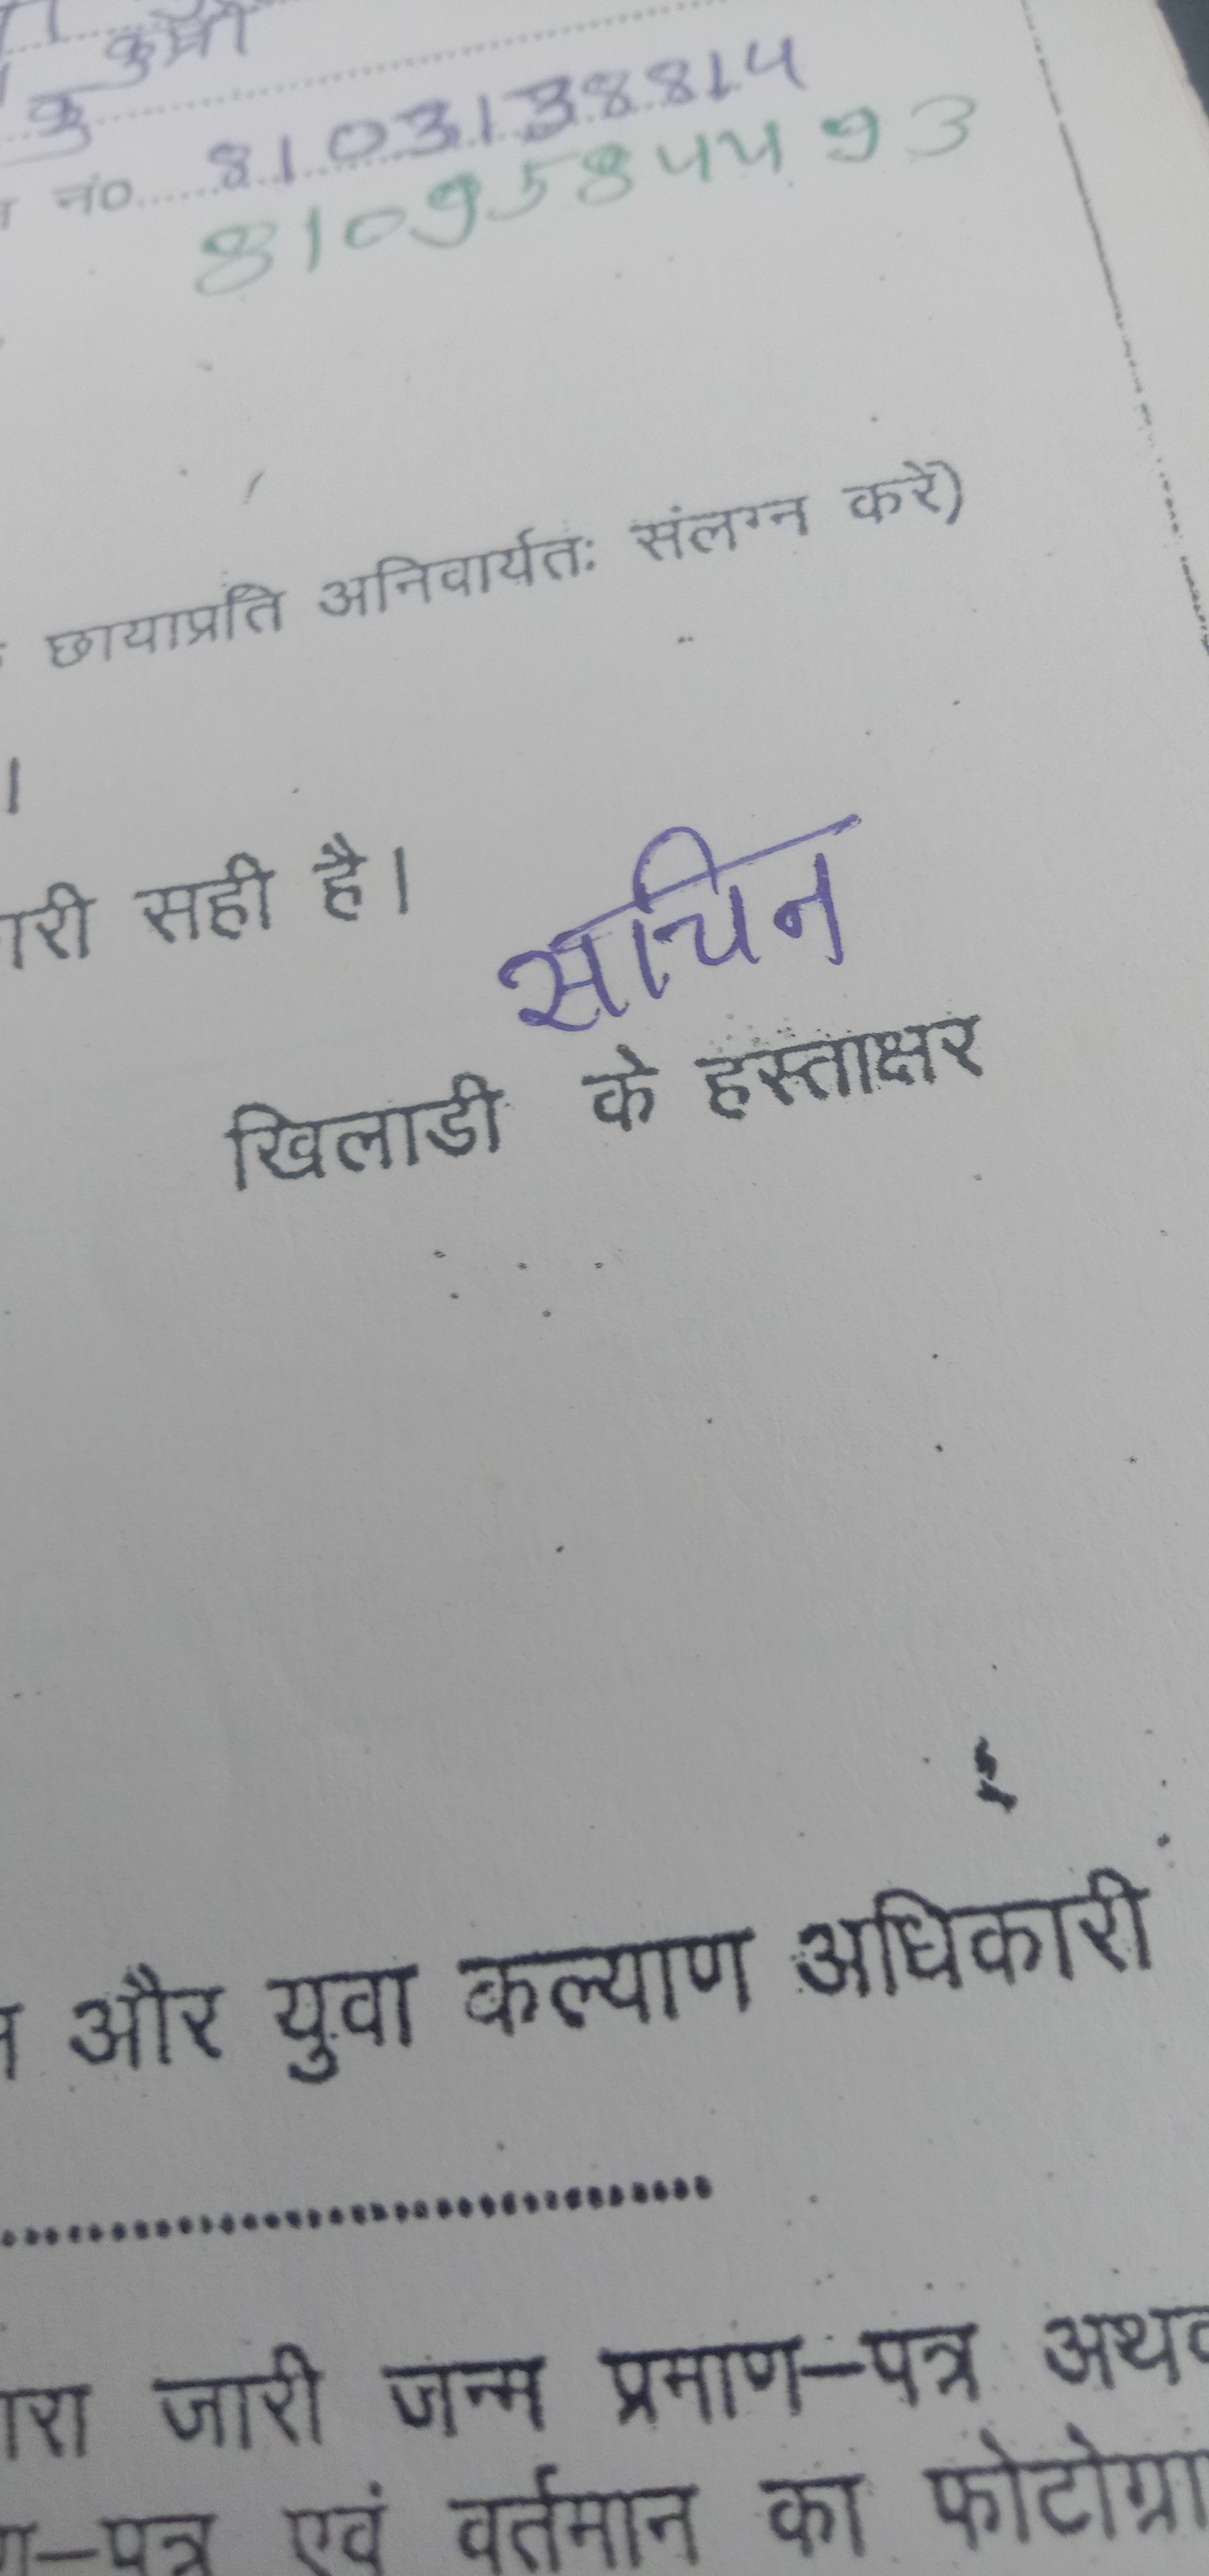 कुर्मी
कु
नं०..... 8103138814
8109584493
छायाप्रति अनिवार्यतः संलग्न करें)
।
री सही है।
सचिन
खिलाडी के हस्ताक्षर
और युवा कल्याण अधिकारी
..................................................
रा जारी जन्म प्रमाण–पत्र
–पत्र एवं वर्तमान का फोटोग्रा